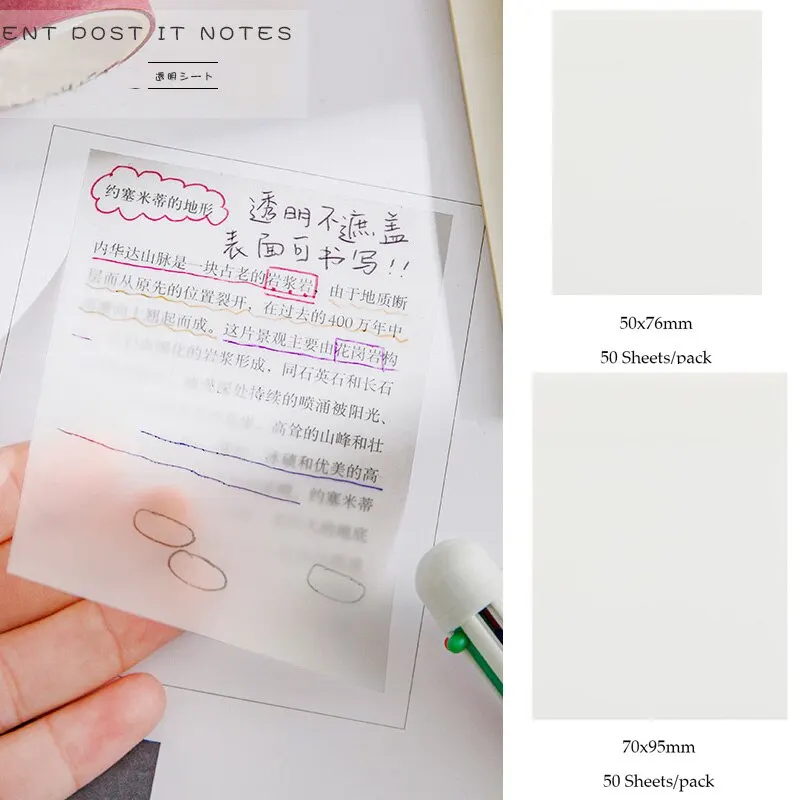 ENT POST IT NOTES
透明シート
约塞米蒂的地形
透明不遮盖
表面可书写!!
内华达山脉是一块古老的岩浆岩,由于地质断
层而从原先的位置裂开,在过去的400万年中
翘起而成。这片景观主要由花岗岩构
化的岩浆形成,同石英石和长石
深处持续的喷涌被阳光、
高耸的山峰和壮
冰碛和优美的高
约塞米蒂
50x76mm
50 Sheets/pack
70x95mm
50 Sheets/pack